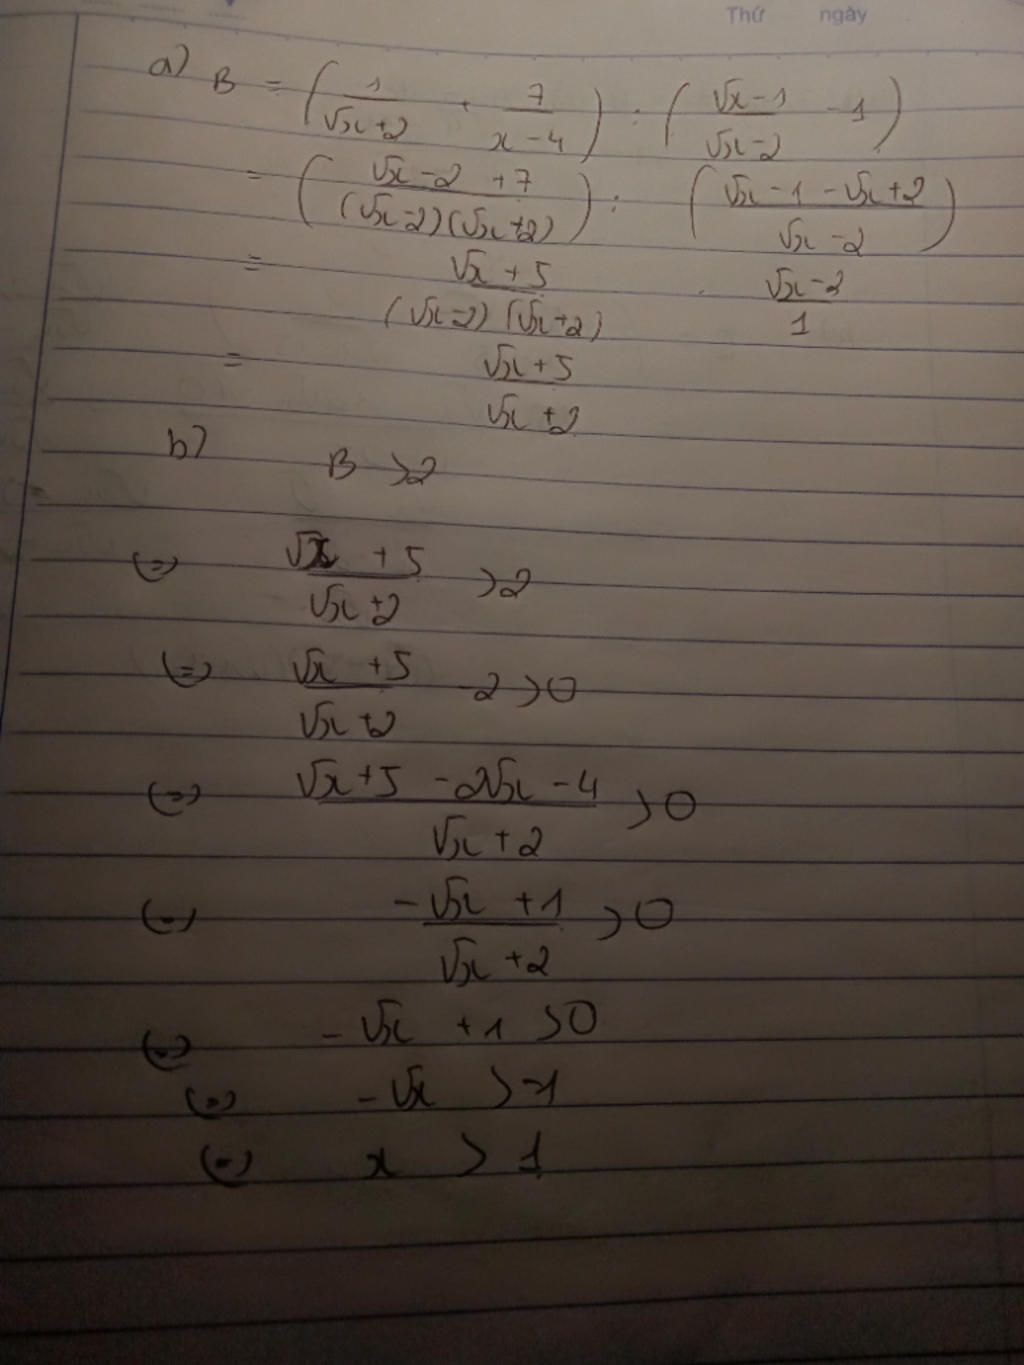 Thứ ngày
a) B = (1/(√x+2) + 7/(x-4)) : ((√x-1)/(√x-2) - 1)
= ((√x-2+7)/((√x-2)(√x+2))) : ((√x-1-√x+2)/(√x-2))
= (√x+5)/((√x-2)(√x+2)) . (√x-2)/1
= (√x+5)/(√x+2)
b) B >2
(=) (√x+5)/(√x+2) >2
(=) (√x+5)/(√x+2) -2>0
(=) (√x+5-2√x-4)/(√x+2) >0
(=) (-√x+1)/(√x+2) >0
(=) -√x+1>0
(=) -√x >-1
(=) x > 1